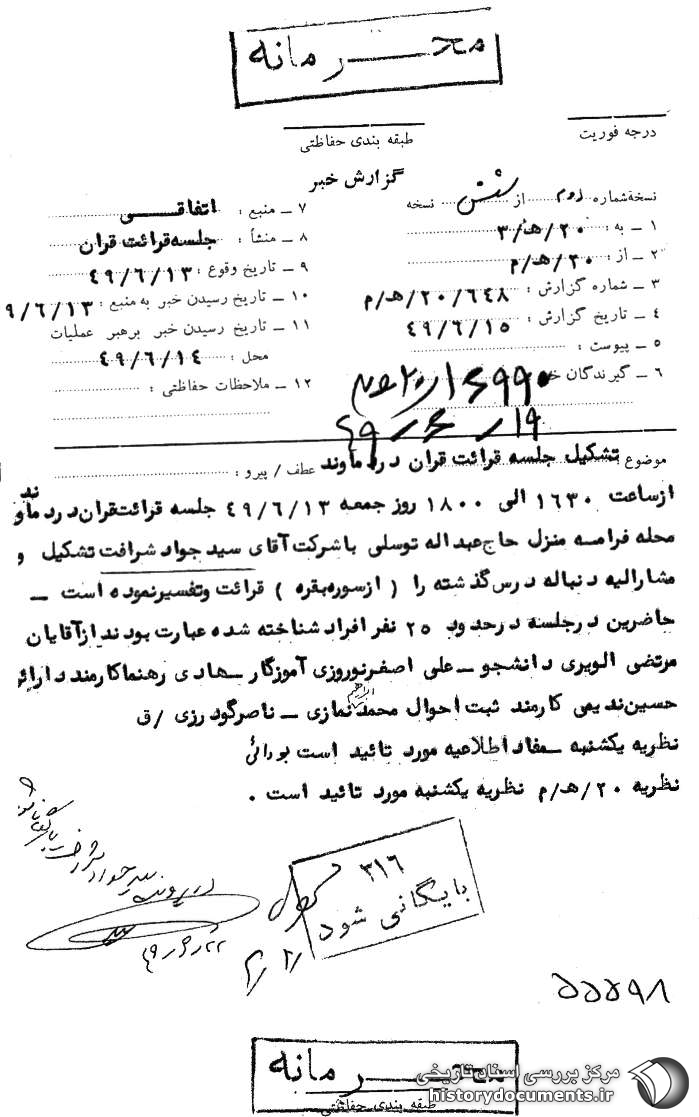 محرمانه
درجه فوریت
طبقه بندی حفاظتی
گزارش خبر
نسخه شماره دوم از شش نسخه
۱ ـ به : ۲۰/هـ/۳
۲ ـ از : ۲۰/هـ/م
۳ ـ شماره گزارش : ۲۰/۶۴۸/هـ/م
۴ ـ تاریخ گزارش : ۴۹/۶/۱۵
۵ ـ پیوست :
۶ ـ گیرندگان خبر
۷ ـ منبع : اتفاقی
۸ ـ منشأ : جلسه قرائت قران
۹ ـ تاریخ وقوع : ۴۹/۶/۱۳
۱۰ ـ تاریخ رسیدن خبر به منبع : ۹/۶/۱۳
۱۱ ـ تاریخ رسیدن خبر برهبر عملیات
محل : ۴۹/۶/۱۴
۱۲ ـ ملاحظات حفاظتی :
۱۶۹۹۰
۱۹/۶/۴۹
موضوع : تشکیل جلسه قرائت قران در دماوند عطف / پیرو :
ازساعت ۱۶۳۰ الی ۱۸۰۰ روز جمعه ۴۹/۶/۱۳ جلسه قرائت قران در دماوند
محله فرامه منزل حاج عبداله توسلی با شرکت آقای سید جواد شرافت تشکیل و
مشارالیه دنباله درس گذشته را ( ازسوره بقره ) قرائت وتفسیرنموده است ـ
حاضرین درجلسه درحدود ۲۵ نفر افراد شناخته شده عبارت بودند از آقایان
مرتضی الویری دانشجو ـ علی اصغر نوروزی آموزگار ـ هادی رهنما کارمند دارائی
حسین ندیمی کارمند ثبت احوال محمد ابراهیم نمازی ـ ناصر گودرزی /ق
نظریه یکشنبه ـ مفاد اطلاعیه مورد تائید است بورائی
نظریه ۲۰/هـ/م نظریه یکشنبه مورد تائید است .
در پرونده سید جواد شرافت بایگانی شود
۲۲/۶/۴۹
۳۱۶
بایگانی شود
۵۵۵۹۸
محرمانه
طبقه بندی حفاظتی
مرکز بررسی اسناد تاریخی
historydocuments.ir